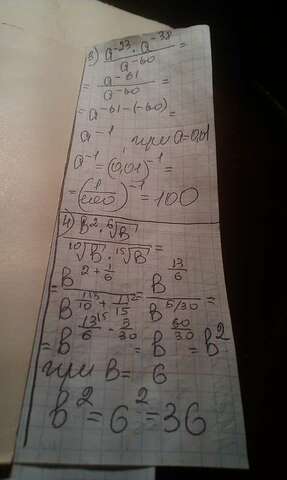 3) a⁻²³ · a⁻³⁸ / a⁻⁶⁰ =
= a⁻⁶¹ / a⁻⁶⁰ =
= a⁻⁶¹⁻⁽⁻⁶⁰⁾ =
a⁻¹ при a=0,01
a⁻¹ = (0,01)⁻¹ =
= (1/100)⁻¹ = 100
4) B² · ⁶√B / ¹⁰√B · ¹⁵√B =
= B^(2 + 1/6) / B^(1/10 + 1/15) = B^(13/6) / B^(5/30) =
= B^(13/6 - 5/30) = B^(60/30) = B²
при B = 6
B² = 6² = 36